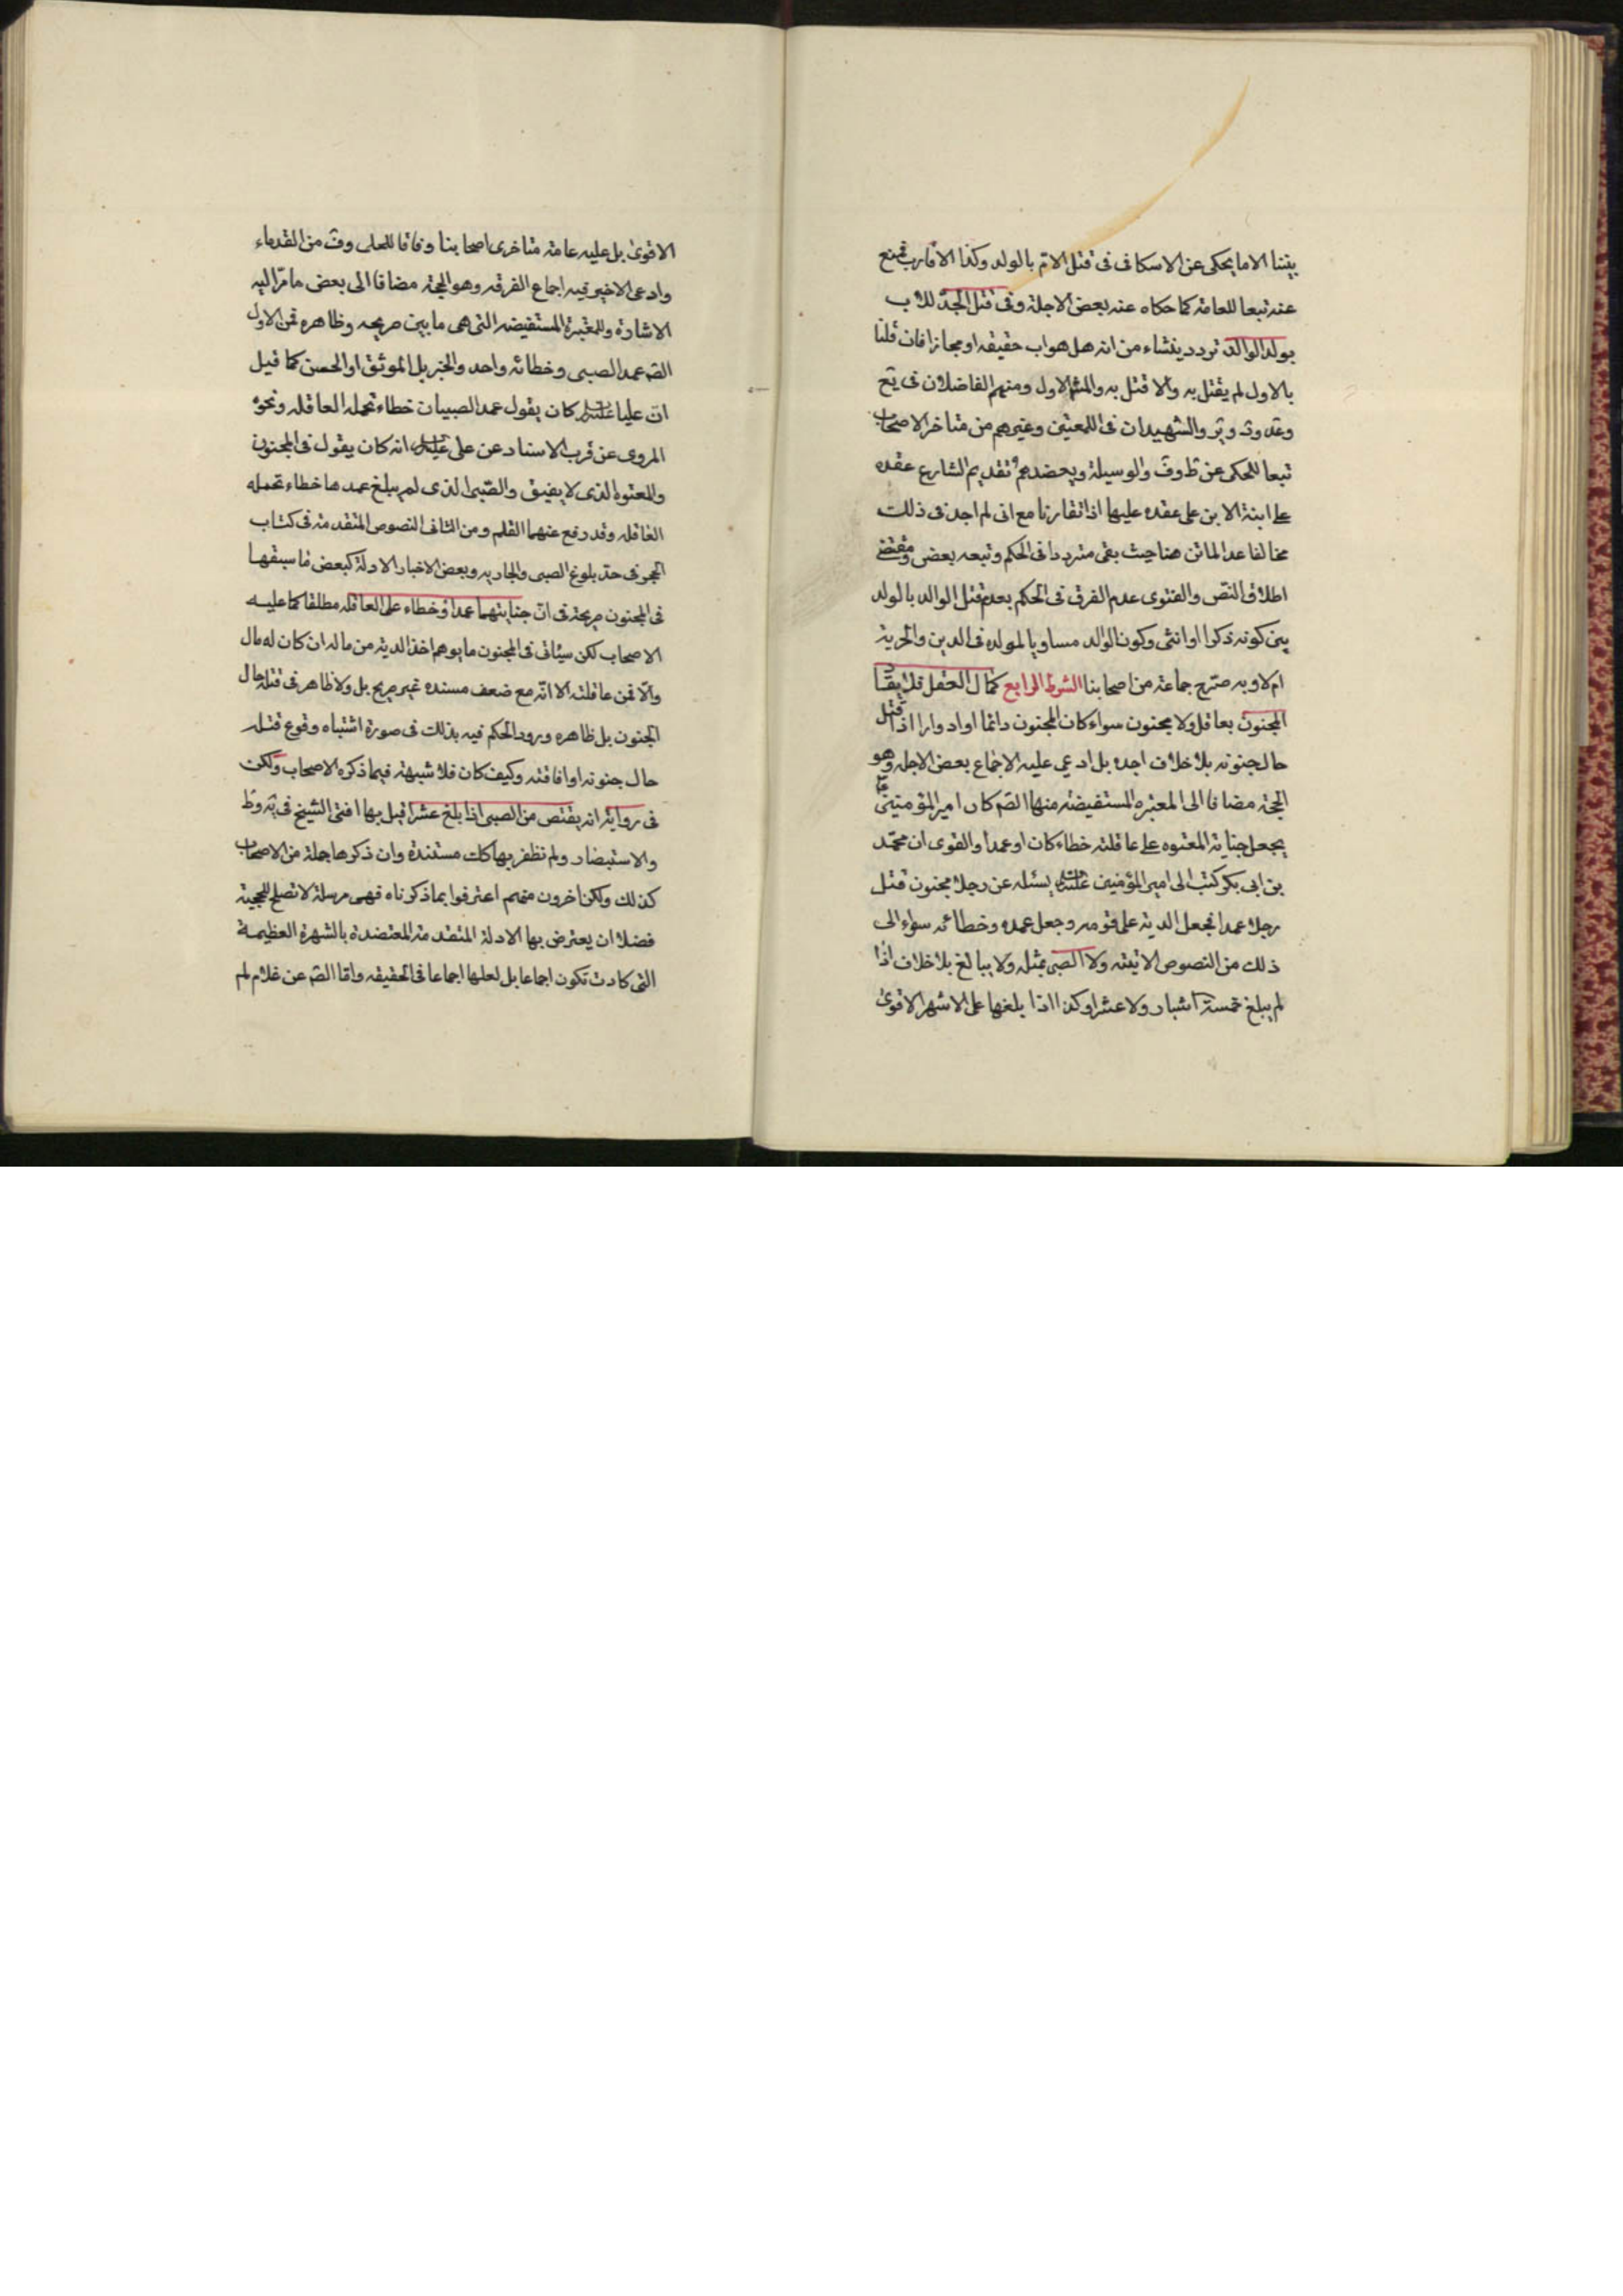 بيننا الا ما يحكى عن الاسكافى فى قتل الام بالولد وكذا الاقارب فمنع
عنه تبعا للعامة كما حكاه عنه بعض الاجلة وفى قتل الجد للاب
بولد الوالد تردد ينشاء من انه هل هو اب حقيقه او مجازا فان قلنا
بالاول لم يقتل به والا قتل به والمش الاول ومنهم الفاضلان فى يع
وعد ود وير والشهيدان فى اللمعتين وغيرهم من متاخر الاصحاب
تبعا للمحكى عن ط وف والوسيلة ويعضدهم تقديم الشارع عقده
على ابنة الابن على عقده عليها اذا تقارنا مع انى لم اجد فى ذلك
مخالفا عدا الماتن هنا حيث بقى مترددا فى الحكم وتبعه بعض ومقتضى
اطلاق النص والفتوى عدم الفرق فى الحكم بعدم قتل الوالد بالولد
بين كونه ذكرا او انثى وكون الوالد مساويا لمولده فى الدين والحرية
ام لا وبه صرّح جماعة من اصحابنا الشرط الرابع كمال العقل فلا يقاد
المجنون بعاقل ولا مجنون سواء كان المجنون دائما او ادوارا اذا قتل
حال جنونه بلا خلاف اجده بل ادعى عليه الاجماع بعض الاجله وهو
الحجة مضافا الى المعتبره المستفيضة منها الصّ كان امير المؤمنين ع
يجعل جناية المعتوه على عاقلته خطاء كان او عمدا والقوى ان محمّد
بن ابى بكر كتب الى امير المؤمنين عليه السلام يسئله عن رجل مجنون قتل
رجلا عمدا فجعل الدية على قومه وجعل عمده وخطائه سواء الى
ذلك من النصوص الاتيته ولا الصبى بمثله ولا ببالغ بلا خلاف اذا
لم يبلغ خمسة اشبار ولا عشرا وكذا اذا بلغها على الاشهر الاقوى
الاقوى بل عليه عامة متاخرى اصحابنا وفاقا للحلى وف من القدماء
وادعى الاخير فيه اجماع الفرقه وهو الحجة مضافا الى بعض ما مرّ اليه
الاشارة وللمعتبرة المستفيضه التى هى ما بين صريحه وظاهره فمن الاول
الصّ عمد الصبى وخطائه واحد والخبر بل الموثق او الحسن كما قيل
انّ عليا عليه السلام كان يقول عمد الصبيان خطاء تحمله العاقله ونحوه
المروى عن قرب الاسناد عن على عليه السلام انه كان يقول فى المجنون
والمعتوه الذى لا يفيق والصّبى الذى لم يبلغ عمدهما خطاء تحمله
العاقله وقد رفع عنهما القلم ومن الثانى النصوص المتقدمة فى كتاب
الحجر فى حد بلوغ الصبى والجاريه وبعض الاخبار الادلة كبعض ما سبقها
فى المجنون صريحة فى انّ جنايتهما عمدا وخطاء على العاقله مطلقا كما عليه
الاصحاب لكن سيئاتى فى المجنون ما يوهم اخذ الدية من ماله ان كان له مال
والّا فمن عاقلته الا انّه مع ضعف مسنده غير صريح بل ولا ظاهر فى قتله حال
الجنون بل ظاهره ورود الحكم فيه بذلك فى صورة اشتباه وقوع قتله
حال جنونه او افاقته وكيف كان فلا شبهة فيما ذكره الاصحاب ولكن
فى رواية انه يقتص من الصبى اذا بلغ عشرا قيل بها افتى الشيخ فى يه وط
والاستبصار ولم نظفر بها كك مسندة وان ذكرها جملة من الاصحاب
كذلك ولكن اخرون منهم اعترفوا بما ذكرناه فهى مرسلة لا تصلح للحجية
فضلا ان يعترض بها الادلة المتقدمة المعتضدة بالشهرة العظيمة
التى كادت تكون اجماعا بل لعلها اجماعا فى الحقيقه وامّا الصّ عن غلام لم